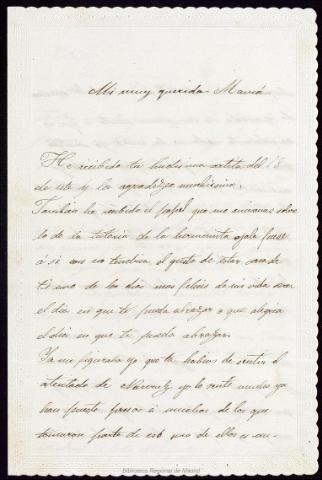 Mi muy querida Mamá
He recibido tu lindisima cartita del 18
de este y la agradezco muchisimo.
Tambien he recibido el papel que me enviavas sobre
lo de la tutoria de la hermanita ojala fuese
á si con eso tendria el gusto de estar
uno de los dias mas felices de mi vida sera
el dia en que te pueda abrazar o que alegria
el dia en que te pueda abrazar.
Ya me figuraba yo que te habias de sentir el
atentado de Narvaez yo lo senti mucho ya
han puesto presos á muchos de los que
tomaron parte de eso uno de ellos es un-
Biblioteca Regional de Madrid